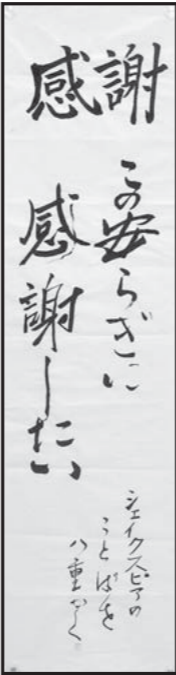 感謝
この安らぎに
感謝したい
シェイクスピアの
ことばを
八重かく